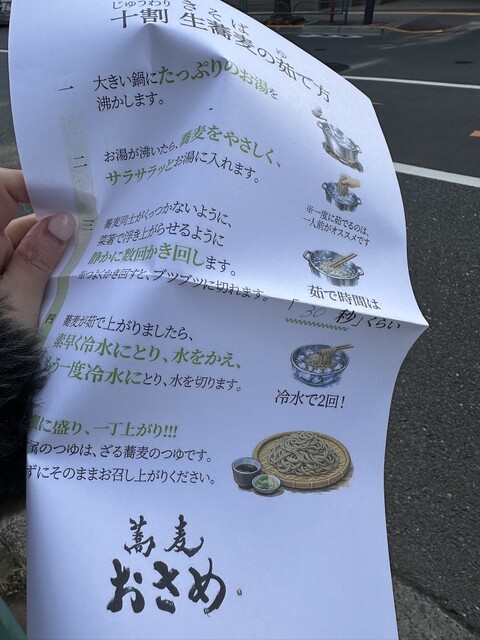 じゅうわり きそば ゆ
十割 生蕎麦の茹で方
一 大きい鍋にたっぷりのお湯を
沸かします。
二 お湯が沸いたら、蕎麦をやさしく、
サラサラッとお湯に入れます。
※一度に茹でるのは、
一人前がオススメです
三 蕎麦同士がくっつかないように、
菜箸で浮き上がらせるように
静かに数回かき回します。
※つよくかき回すと、ブツブツに切れます。
茹で時間は
「30 秒」くらい
四 蕎麦が茹で上がりましたら、
素早く冷水にとり、水をかえ、
もう一度冷水にとり、水を切ります。
冷水で2回!
に盛り、一丁上がり!!!
属のつゆは、ざる蕎麦のつゆです。
ずにそのままお召し上がりください。
蕎麦
おさめ